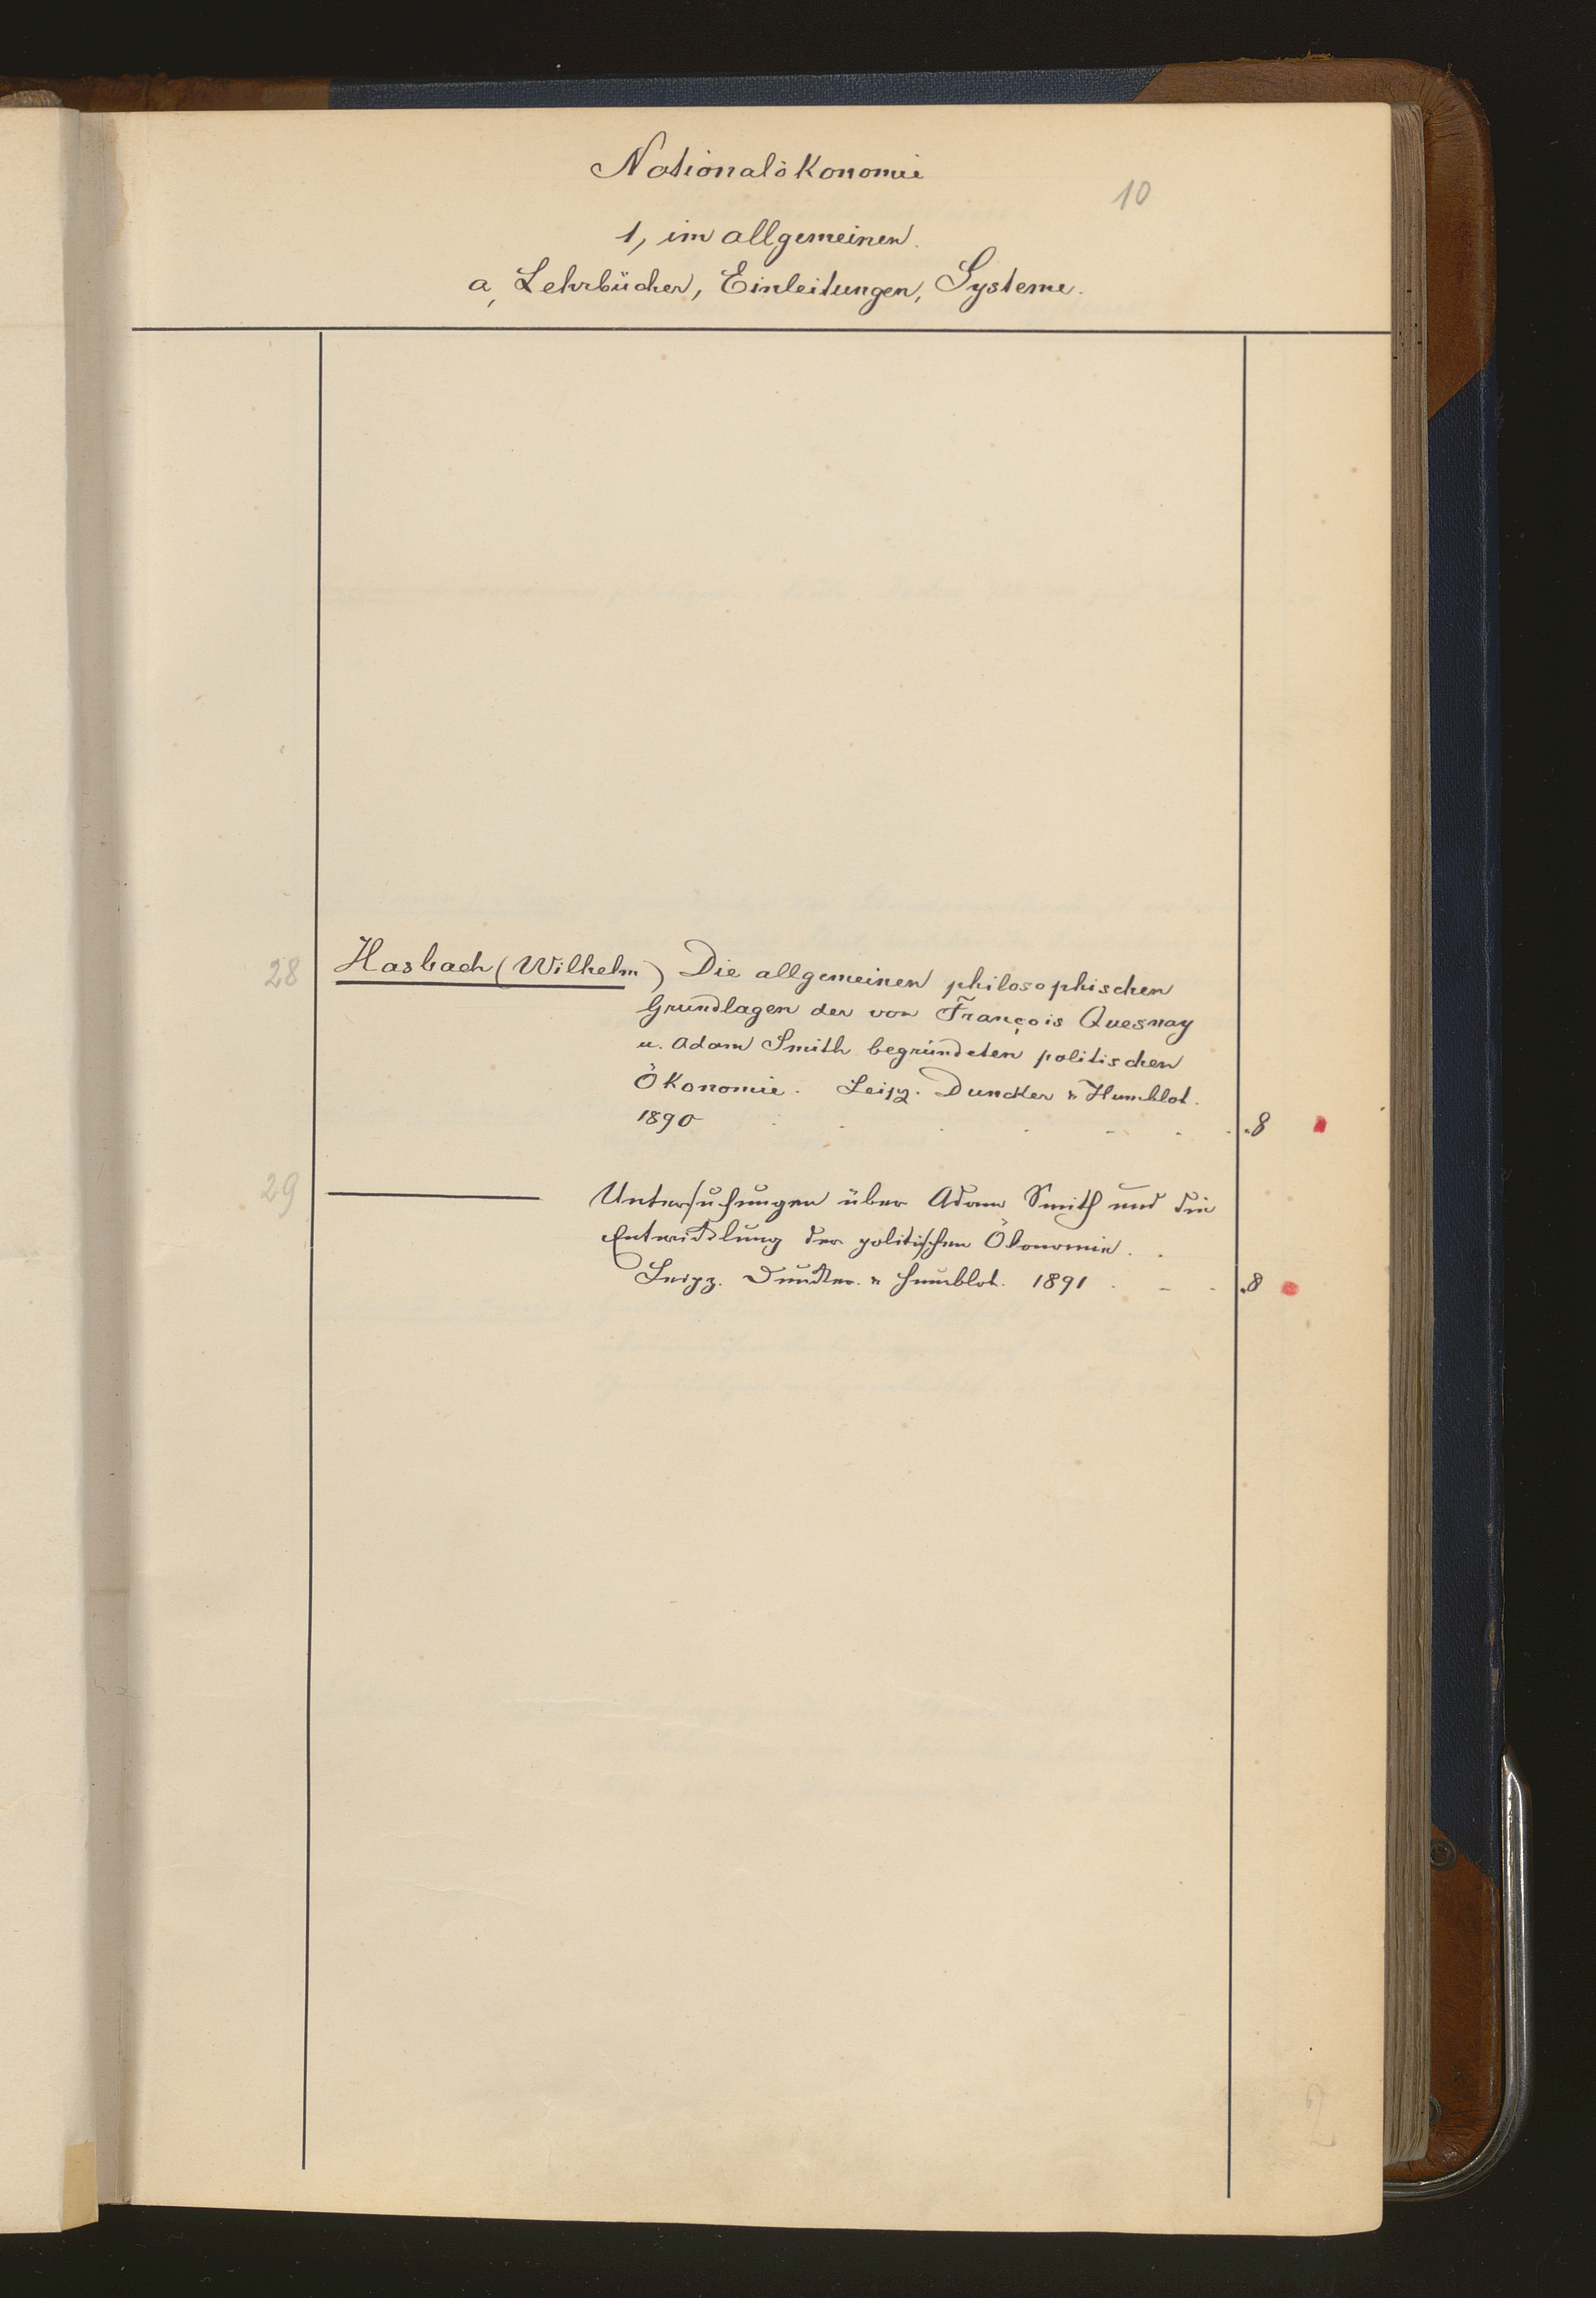 Nationalökonomie
10
1, im allgemeinen.
a, Lehrbücher, Einleitungen, Systeme.
28 Hasbach (Wilhelm) Die allgemeinen philosophischen
Grundlagen der von François Quesnay
u. Adam Smith begründeten politischen
Ökonomie. Leipz. Duncker & Humblot.
1890 . . . . . . 8
29 ——— Untersuchungen über Adam Smith und die
Entwicklung der politischen Ökonomie. .
Leipz. Duncker & Humblot. 1891 . . . . 8
2